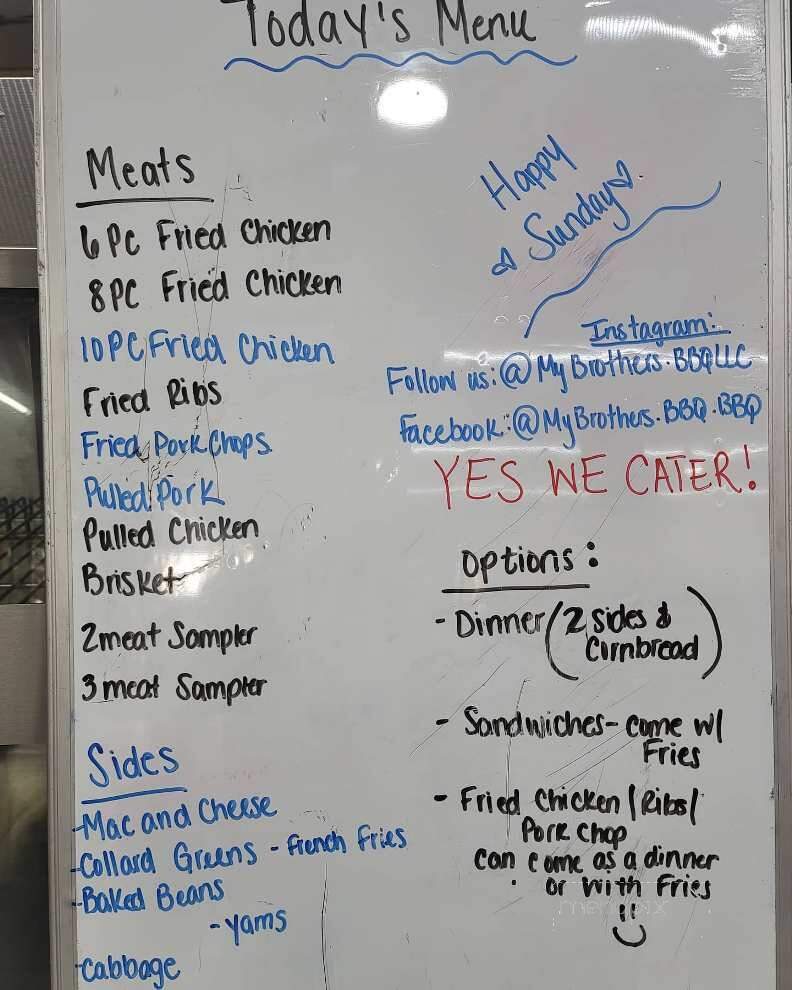 Today's Menu
Meats
6 PC Fried Chicken
8 PC Fried Chicken
10 PC Fried Chicken
Fried Ribs
Fried Pork Chops
Pulled Pork
Pulled Chicken
Brisket
2 meat Sampler
3 meat Sampler
Sides
-Mac and Cheese
-Collard Greens - French Fries
-Baked Beans
-yams
-Cabbage
Happy
Sunday
Instagram:
Follow us: @MyBrothers.BBQLLC
Facebook: @MyBrothers.BBQ.BBQ
YES WE CATER!
Options:
- Dinner (2 sides &
Cornbread)
- Sandwiches- come w/
Fries
- Fried Chicken / Ribs /
Pork Chop
can come as a dinner
or with Fries
menupix